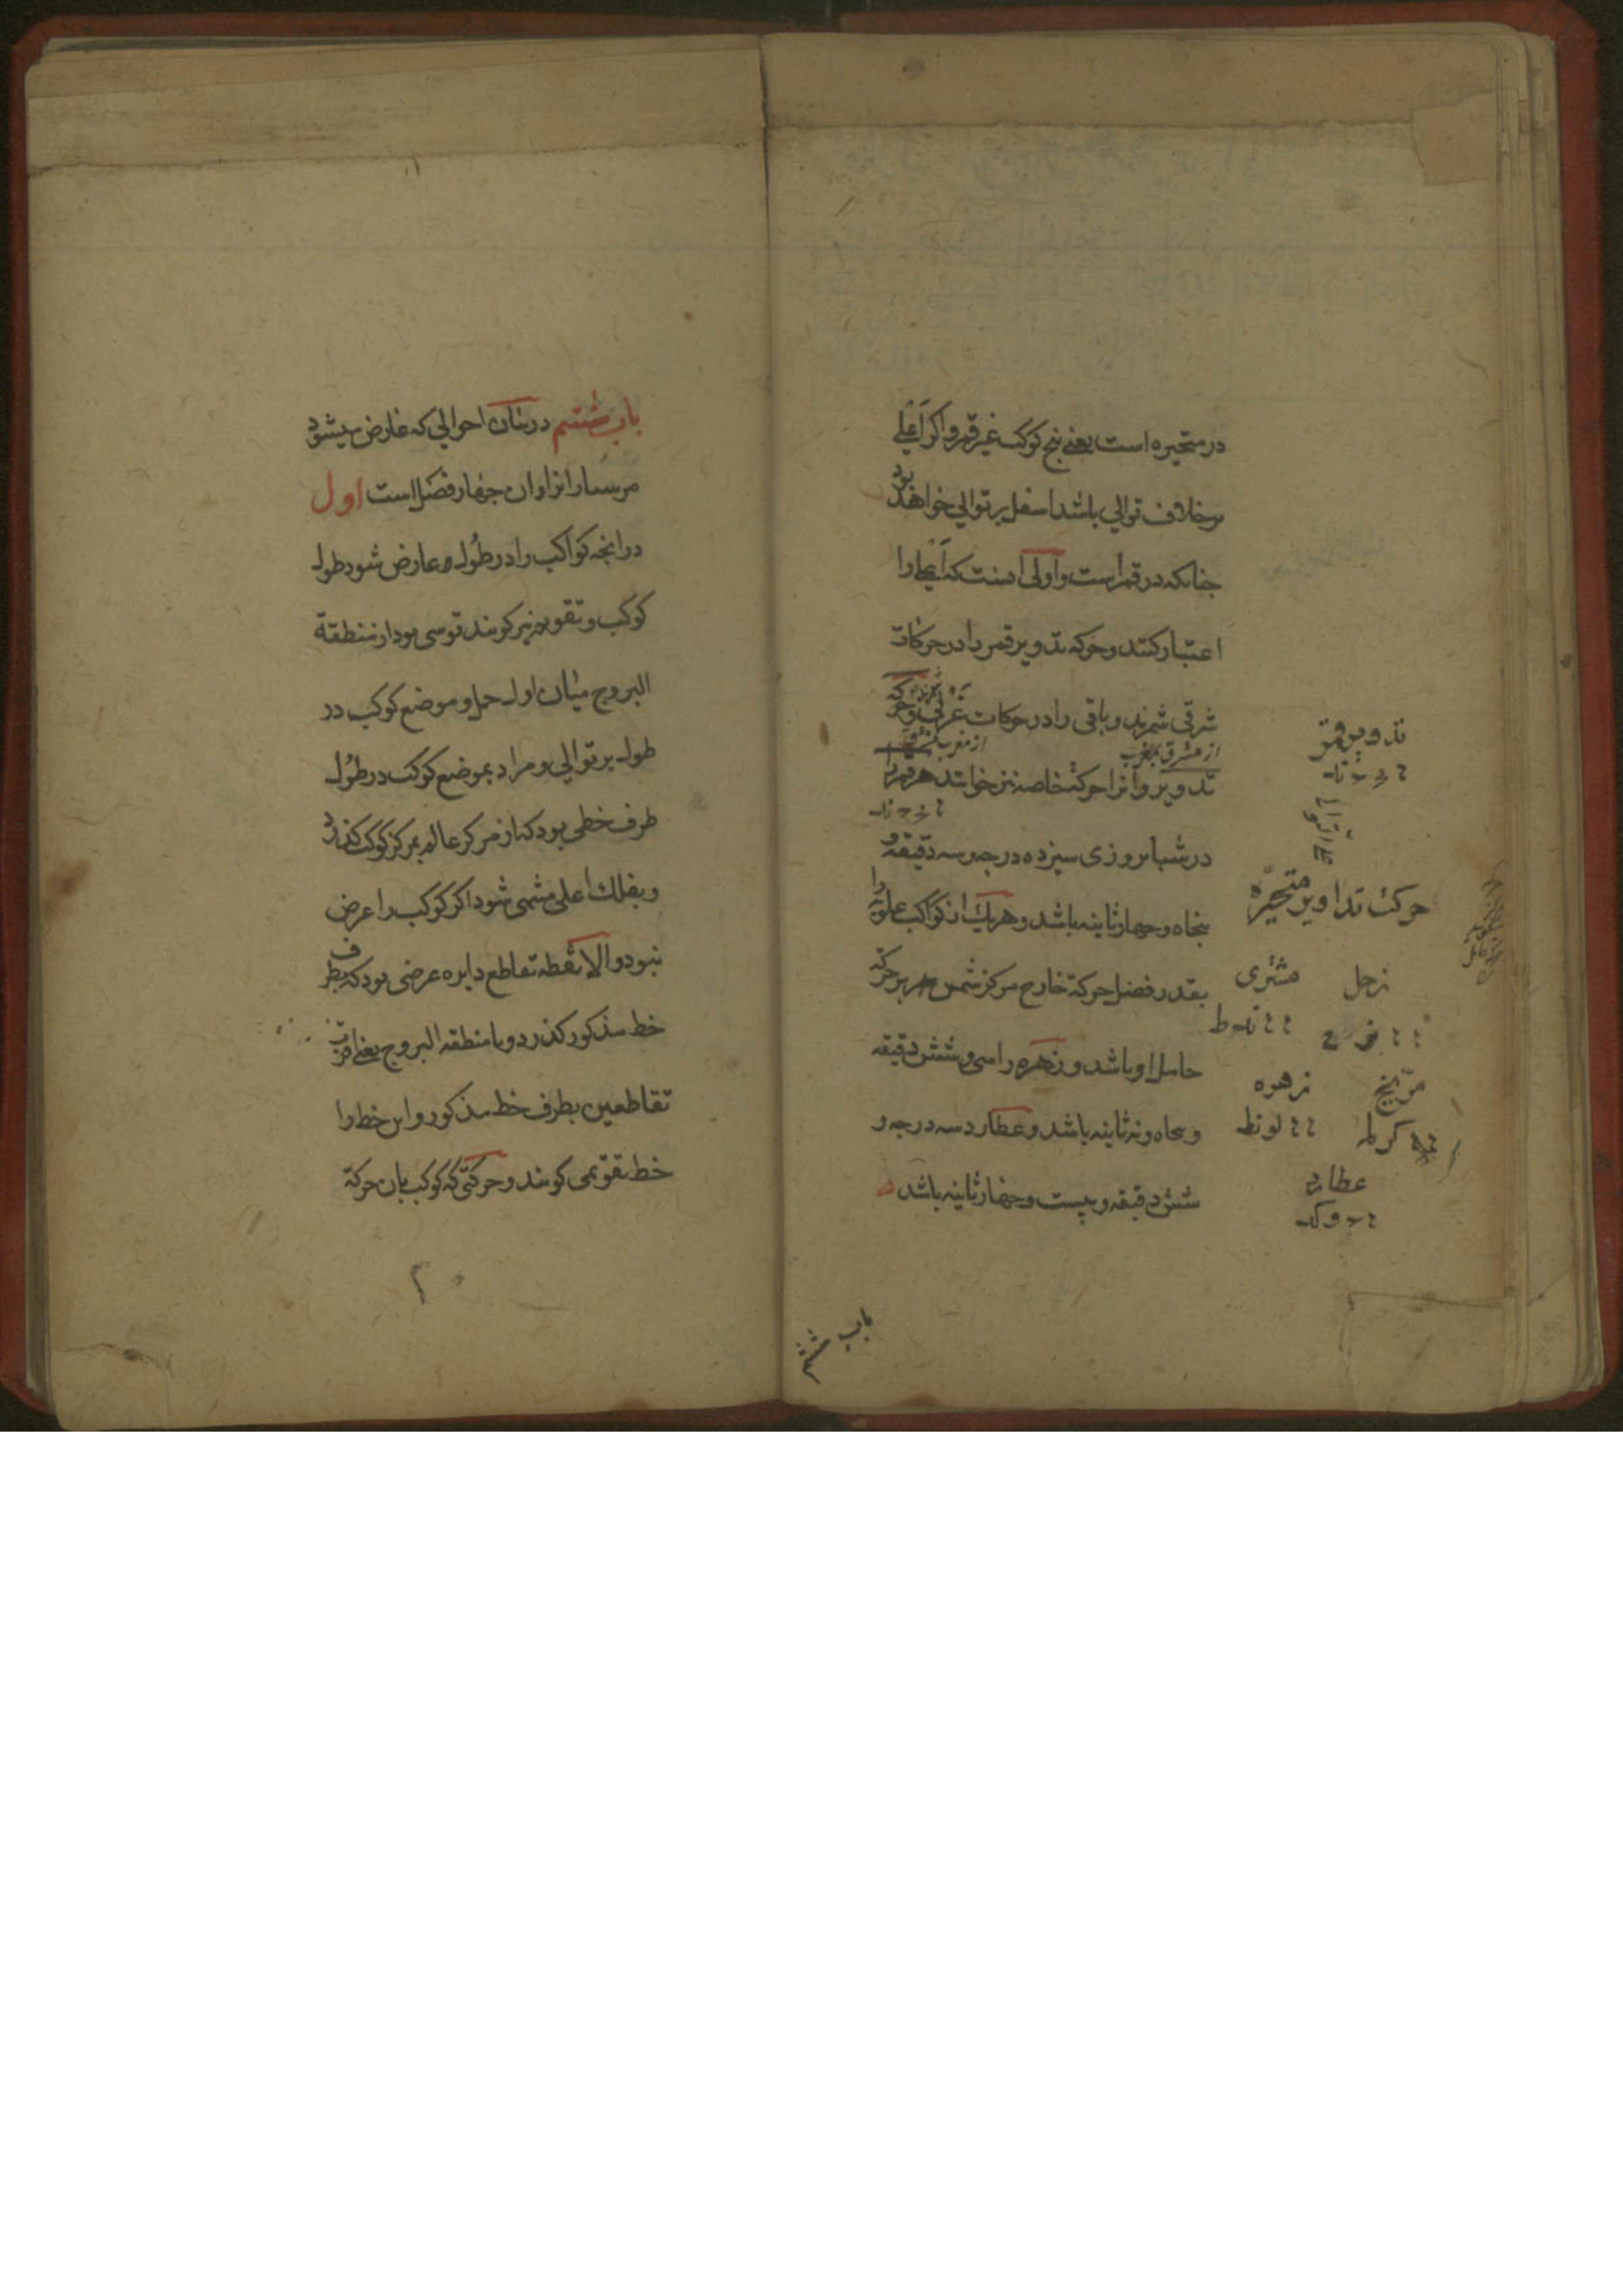 در متحیره است یعنے پنج کوکب غیر قمر و اکر اعلے
بر خلاف توالی باشد اسفل بر توالی خواهد بود
جنانکه در قمر است و اولی انست که اعلے را
اعتبار کنند و حرکه تدویر قمر را در حرکات
شرقی شمرند و باقی را در حرکات غربی و حرکة
از مشرق بمغرب
از مغرب بمشرق
تدویر و انرا حرکة خاصه نیز خوانند هر قمر را
در شبانروزی سیزده درجه و سه دقیقه و
پنجاه و جهار ثانیه باشد و هر یک از کواکب علویه را
بقدر فضل حرکة خارج مرکز شمس بر حرکة
حامل او باشد و زهره را سی و شش دقیقه
و پنجاه و نه ثانیه باشد و عطارد سه درجه و
شش دقیقه و بیست و جهار ثانیه باشد
تدویر قمر
حرکت تداویر متحیّره
زحل مشتری
مرّیخ زهره
عطارد
باب ششم
باب ششم در بیان احوالی که عارض میشود
اول
در انچه کواکب را در طول عارض شود طول
کوکب و تقویم نیز کویند قوسی بود از منطقة
البروج میان اول حمل و موضع کوکب در
طول بر توالی و مراد بموضع کوکب در طول
طرف خطی بود که از مرکز عالم بمرکز کوکب کذرد
و بفلك اعلی منتهی شود اکر کوکب را عرض
نبود و الا نقطه تقاطع دایره عرضی بود که بطرف
خط مذکور کذرد و با منطقه البروج یعنے اقرب
تقاطعین بطرف خط مذکور و این خط را
خط تقویمی کویند و حرکتی که کوکب بان حرکة